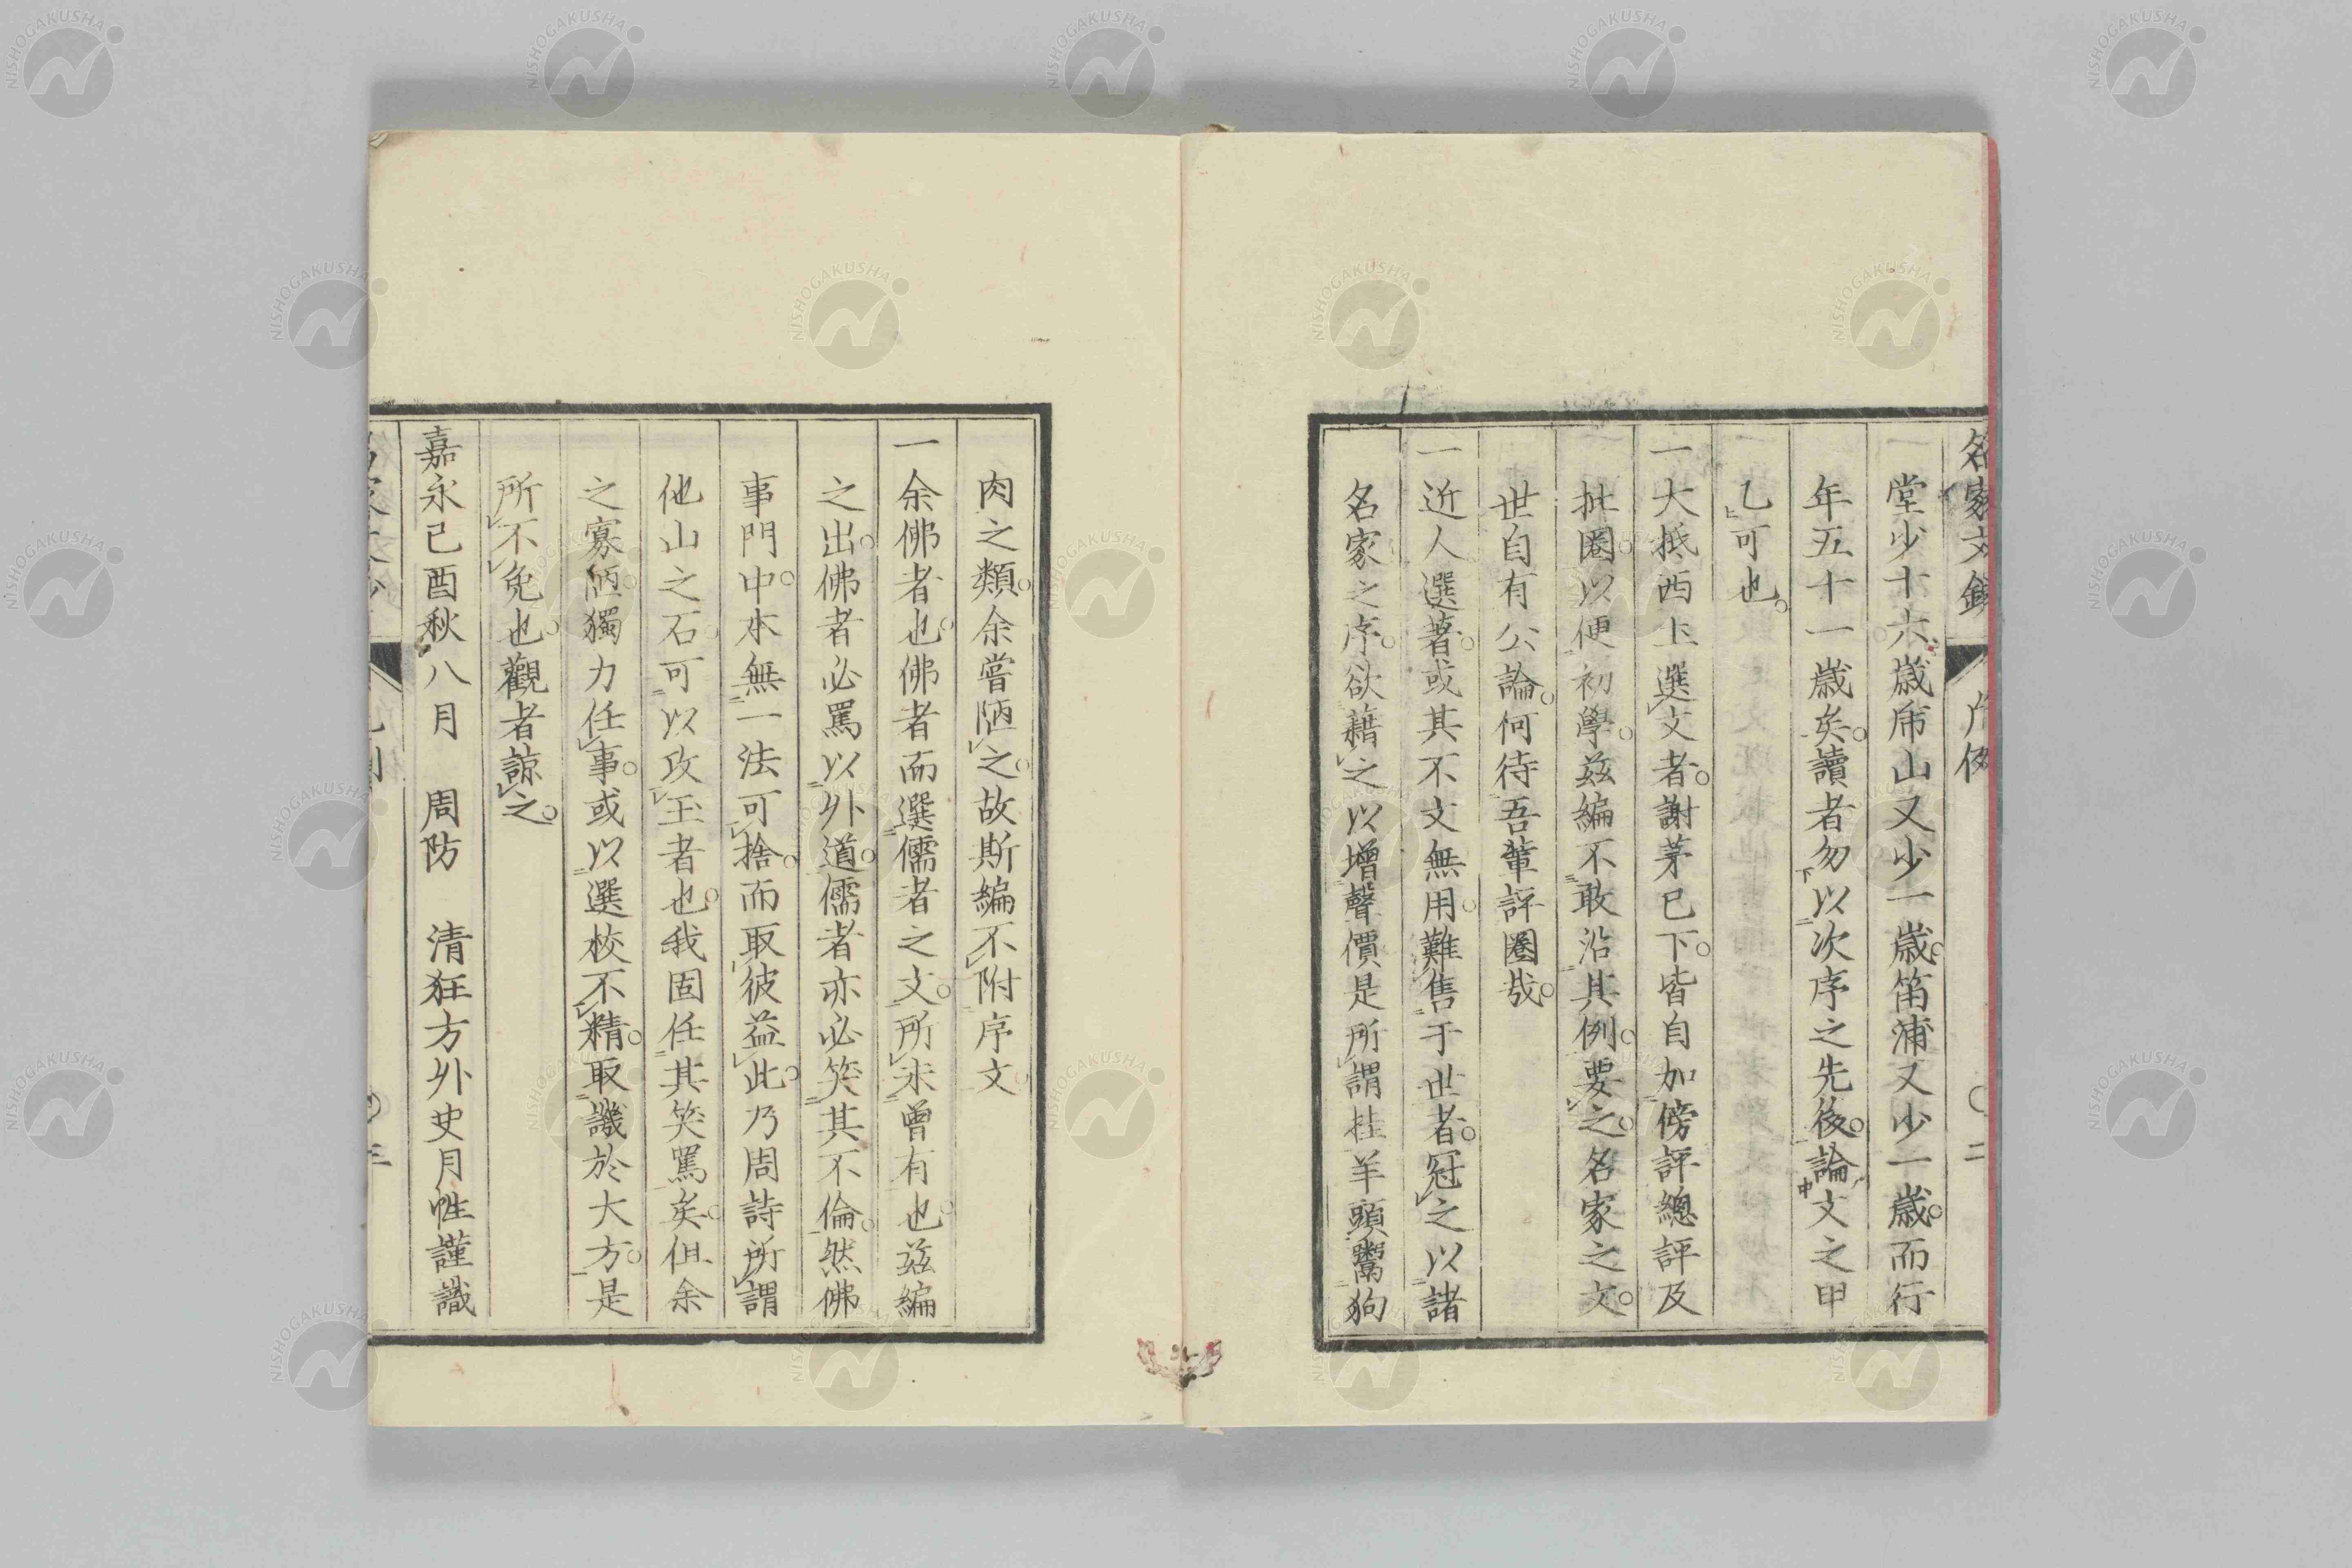 堂少十六歳㠯山又少一歳笛浦又少一歳而行
年五十一歳矣讀者勿以次序之先後論文之甲
乙可也
一大抵西土選文者謝茅已下皆自加傍評總評及
批圈以便初學茲編不敢沿其例要之名家之文
世自有公論何待吾輩評圈哉
一近人選著或其不文無用難售于世者冠之以諸
名家之序欲藉之以増聲價是所謂挂羊頭鬻狗
肉之類余嘗陋之故斯編不附序文
一余佛者也佛者而選儒者之文所未曾有也茲編
之出佛者必罵以外道儒者亦必笑其不倫然佛
事門中本無一法可捨而取彼益此乃周詩所謂
他山之石可以攻玉者也我固任其笑罵矣但余
之寡陋獨力任事或以選校不精取譏於大方是
所不免也觀者諒之
嘉永己酉秋八月 周防 清狂方外史月性謹識
名家文鈔
二
三
NISHOGAKUSHA